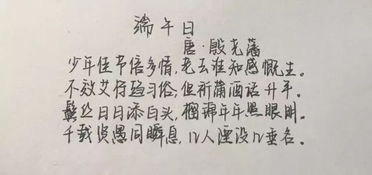 端午日
唐·殷尧藩
少年佳节倍多情,老去谁知感慨生。
不效艾符趋习俗,但祈蒲酒话升平。
鬓丝日日添白头,榴锦年年照眼明。
千载贤愚同瞬息,几人湮没几垂名。